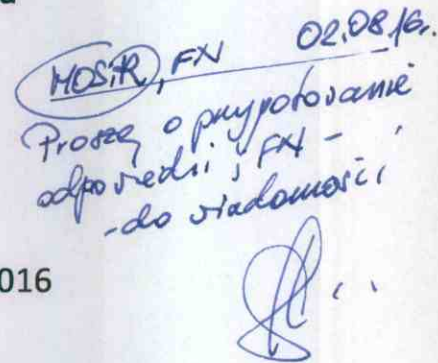 a
MOSiR, FN 02.08.16r.
Proszę o przygotowanie
odpowiedzi, FN -
- do wiadomości
2016